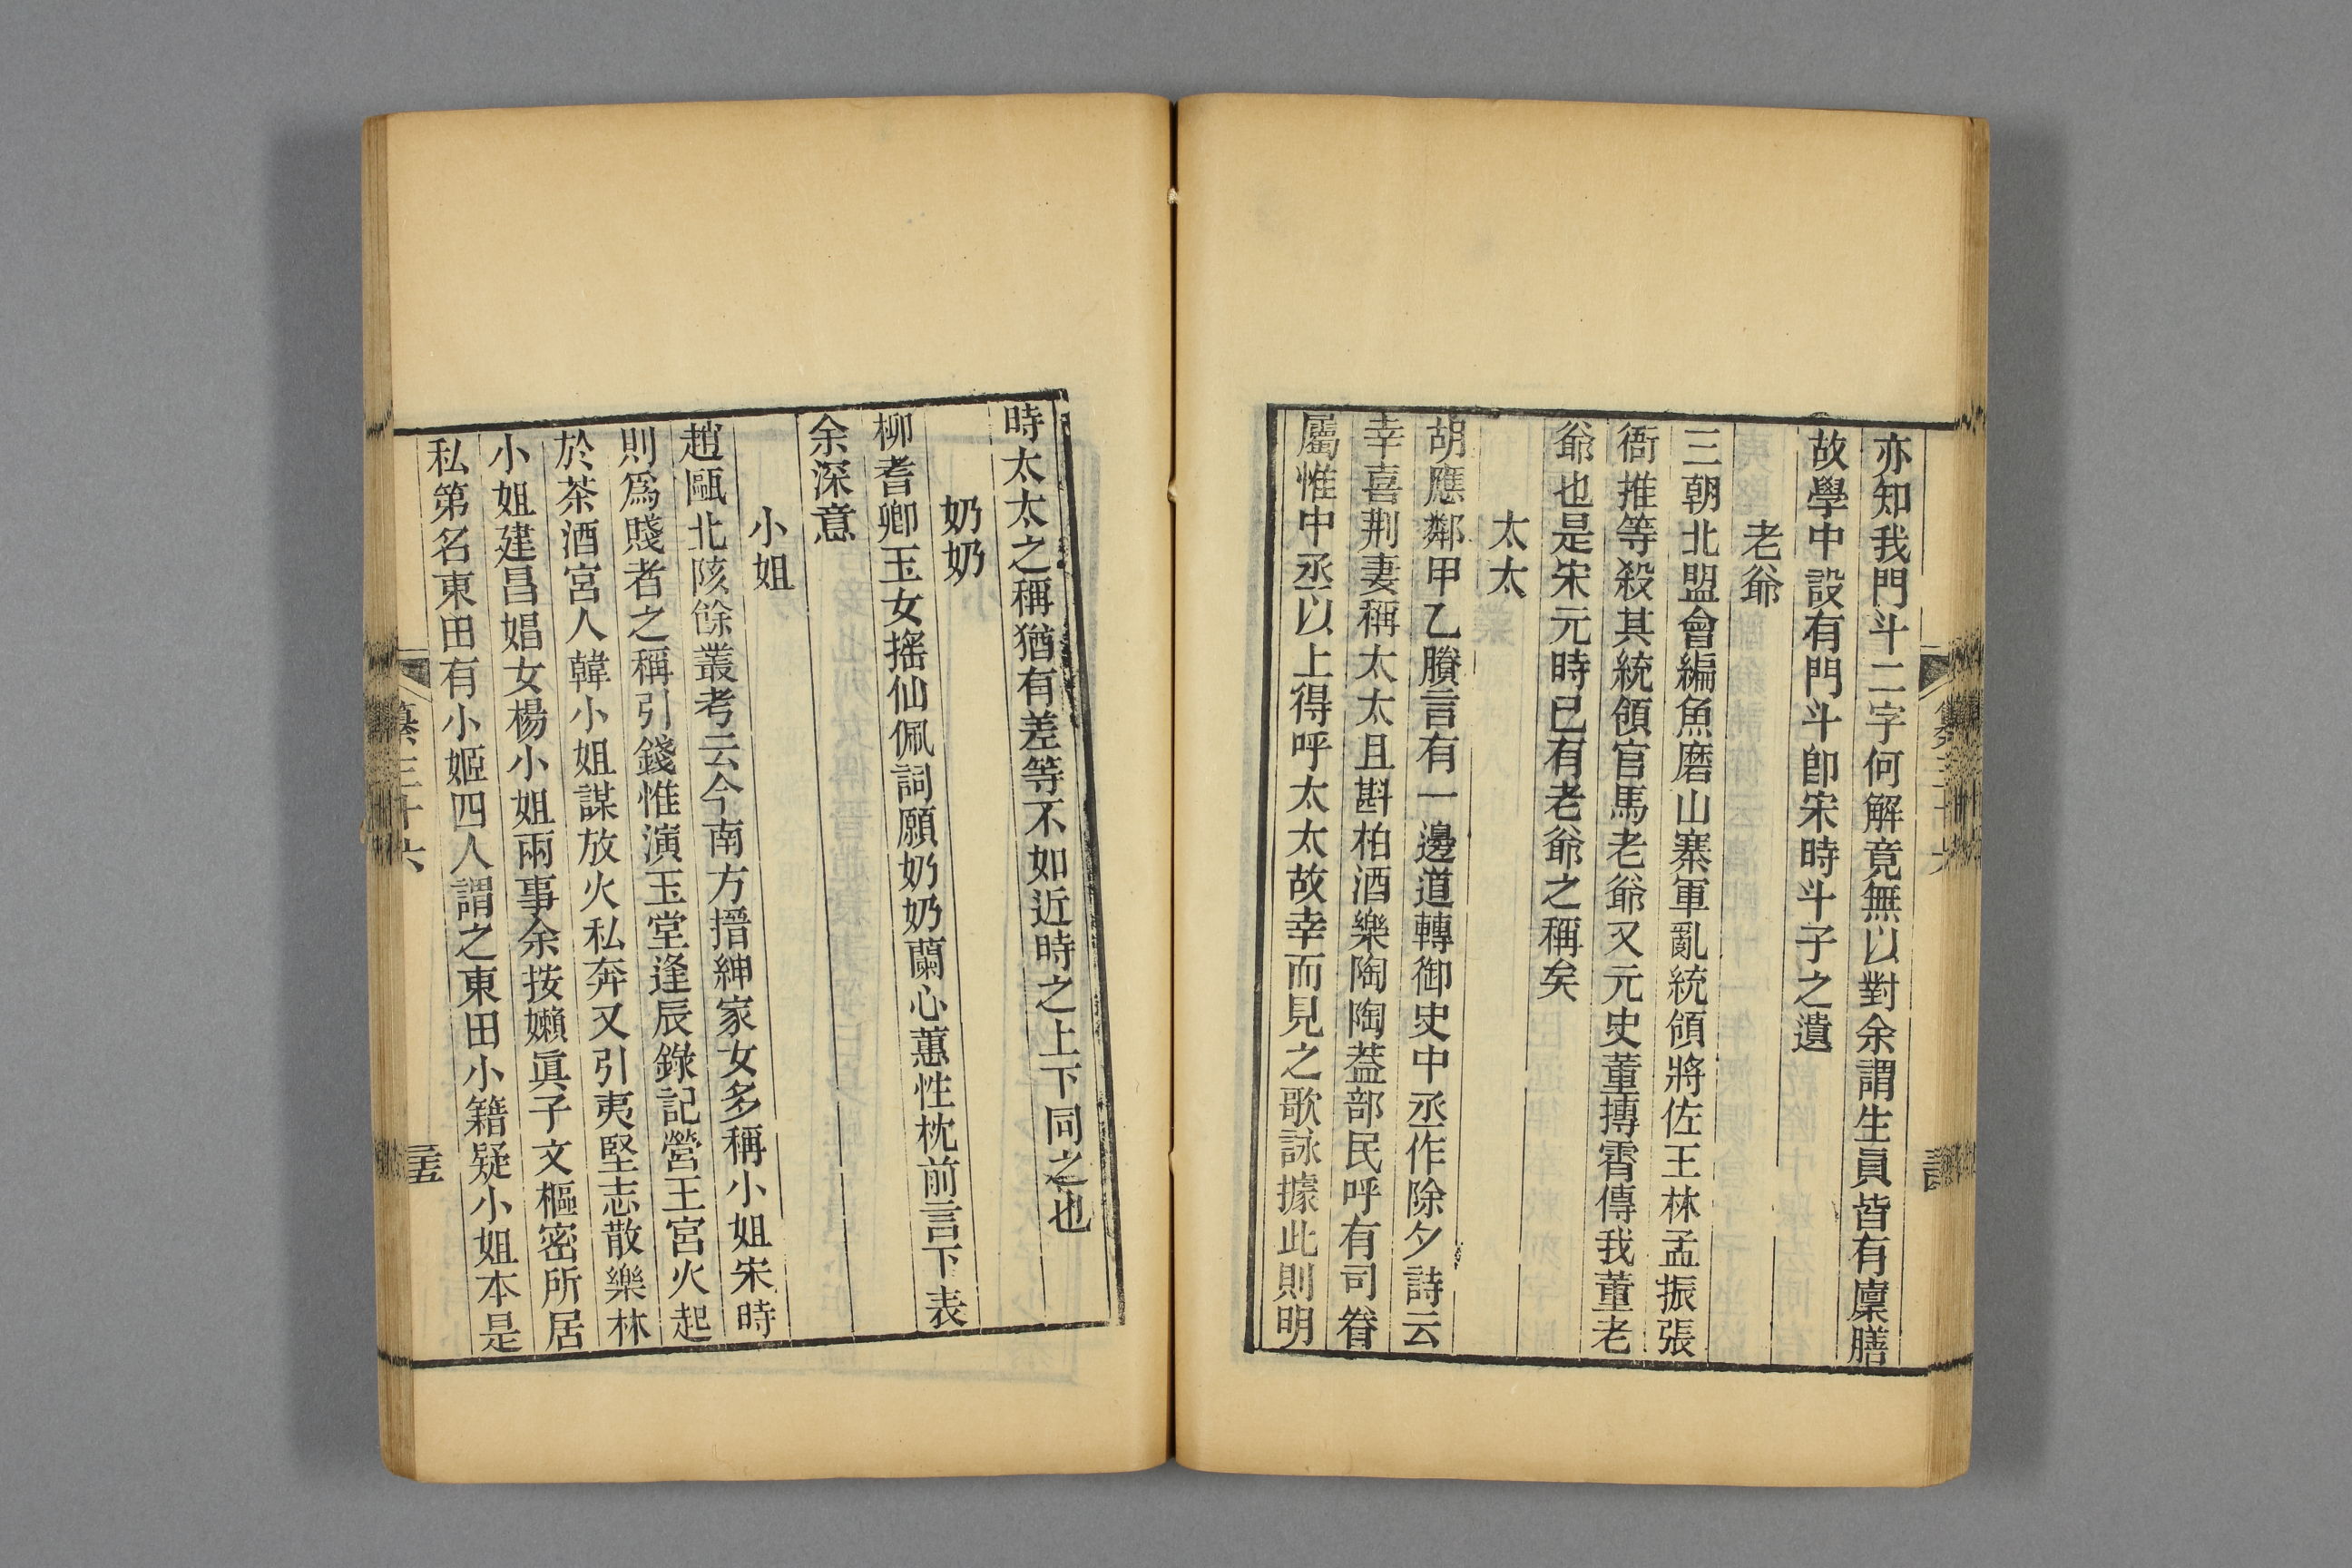 亦知我門斗二字何解竟無以對余謂生員皆有廩膳
故學中設有門斗卽宋時斗子之遺
老爺
三朝北盟會編魚磨山寨軍亂統領將佐王林孟振張
衙推等殺其統領官馬老爺又元史董摶霄傳我董老
爺也是宋元時已有老爺之稱矣
太太
胡應鄰甲乙賸言有一邊道轉御史中丞作除夕詩云
幸喜荆妻稱太太且斟柏酒樂陶陶葢部民呼有司眷
屬惟中丞以上得呼太太故幸而見之歌詠據此則明
時太太之稱猶有差等不如近時之上下同之也
奶奶
柳耆卿玉女搖仙佩詞願奶奶蘭心蕙性枕前言下表
余深意
小姐
趙甌北陔餘叢考云今南方搢紳家女多稱小姐宋時
則爲賤者之稱引錢惟演玉堂逢辰錄記營王宮火起
於茶酒宮人韓小姐謀放火私奔又引夷堅志散樂林
小姐建昌娼女楊小姐兩事余按嬾眞子文樞密所居
私第名東田有小姬四人謂之東田小籍疑小姐本是
纂三十六